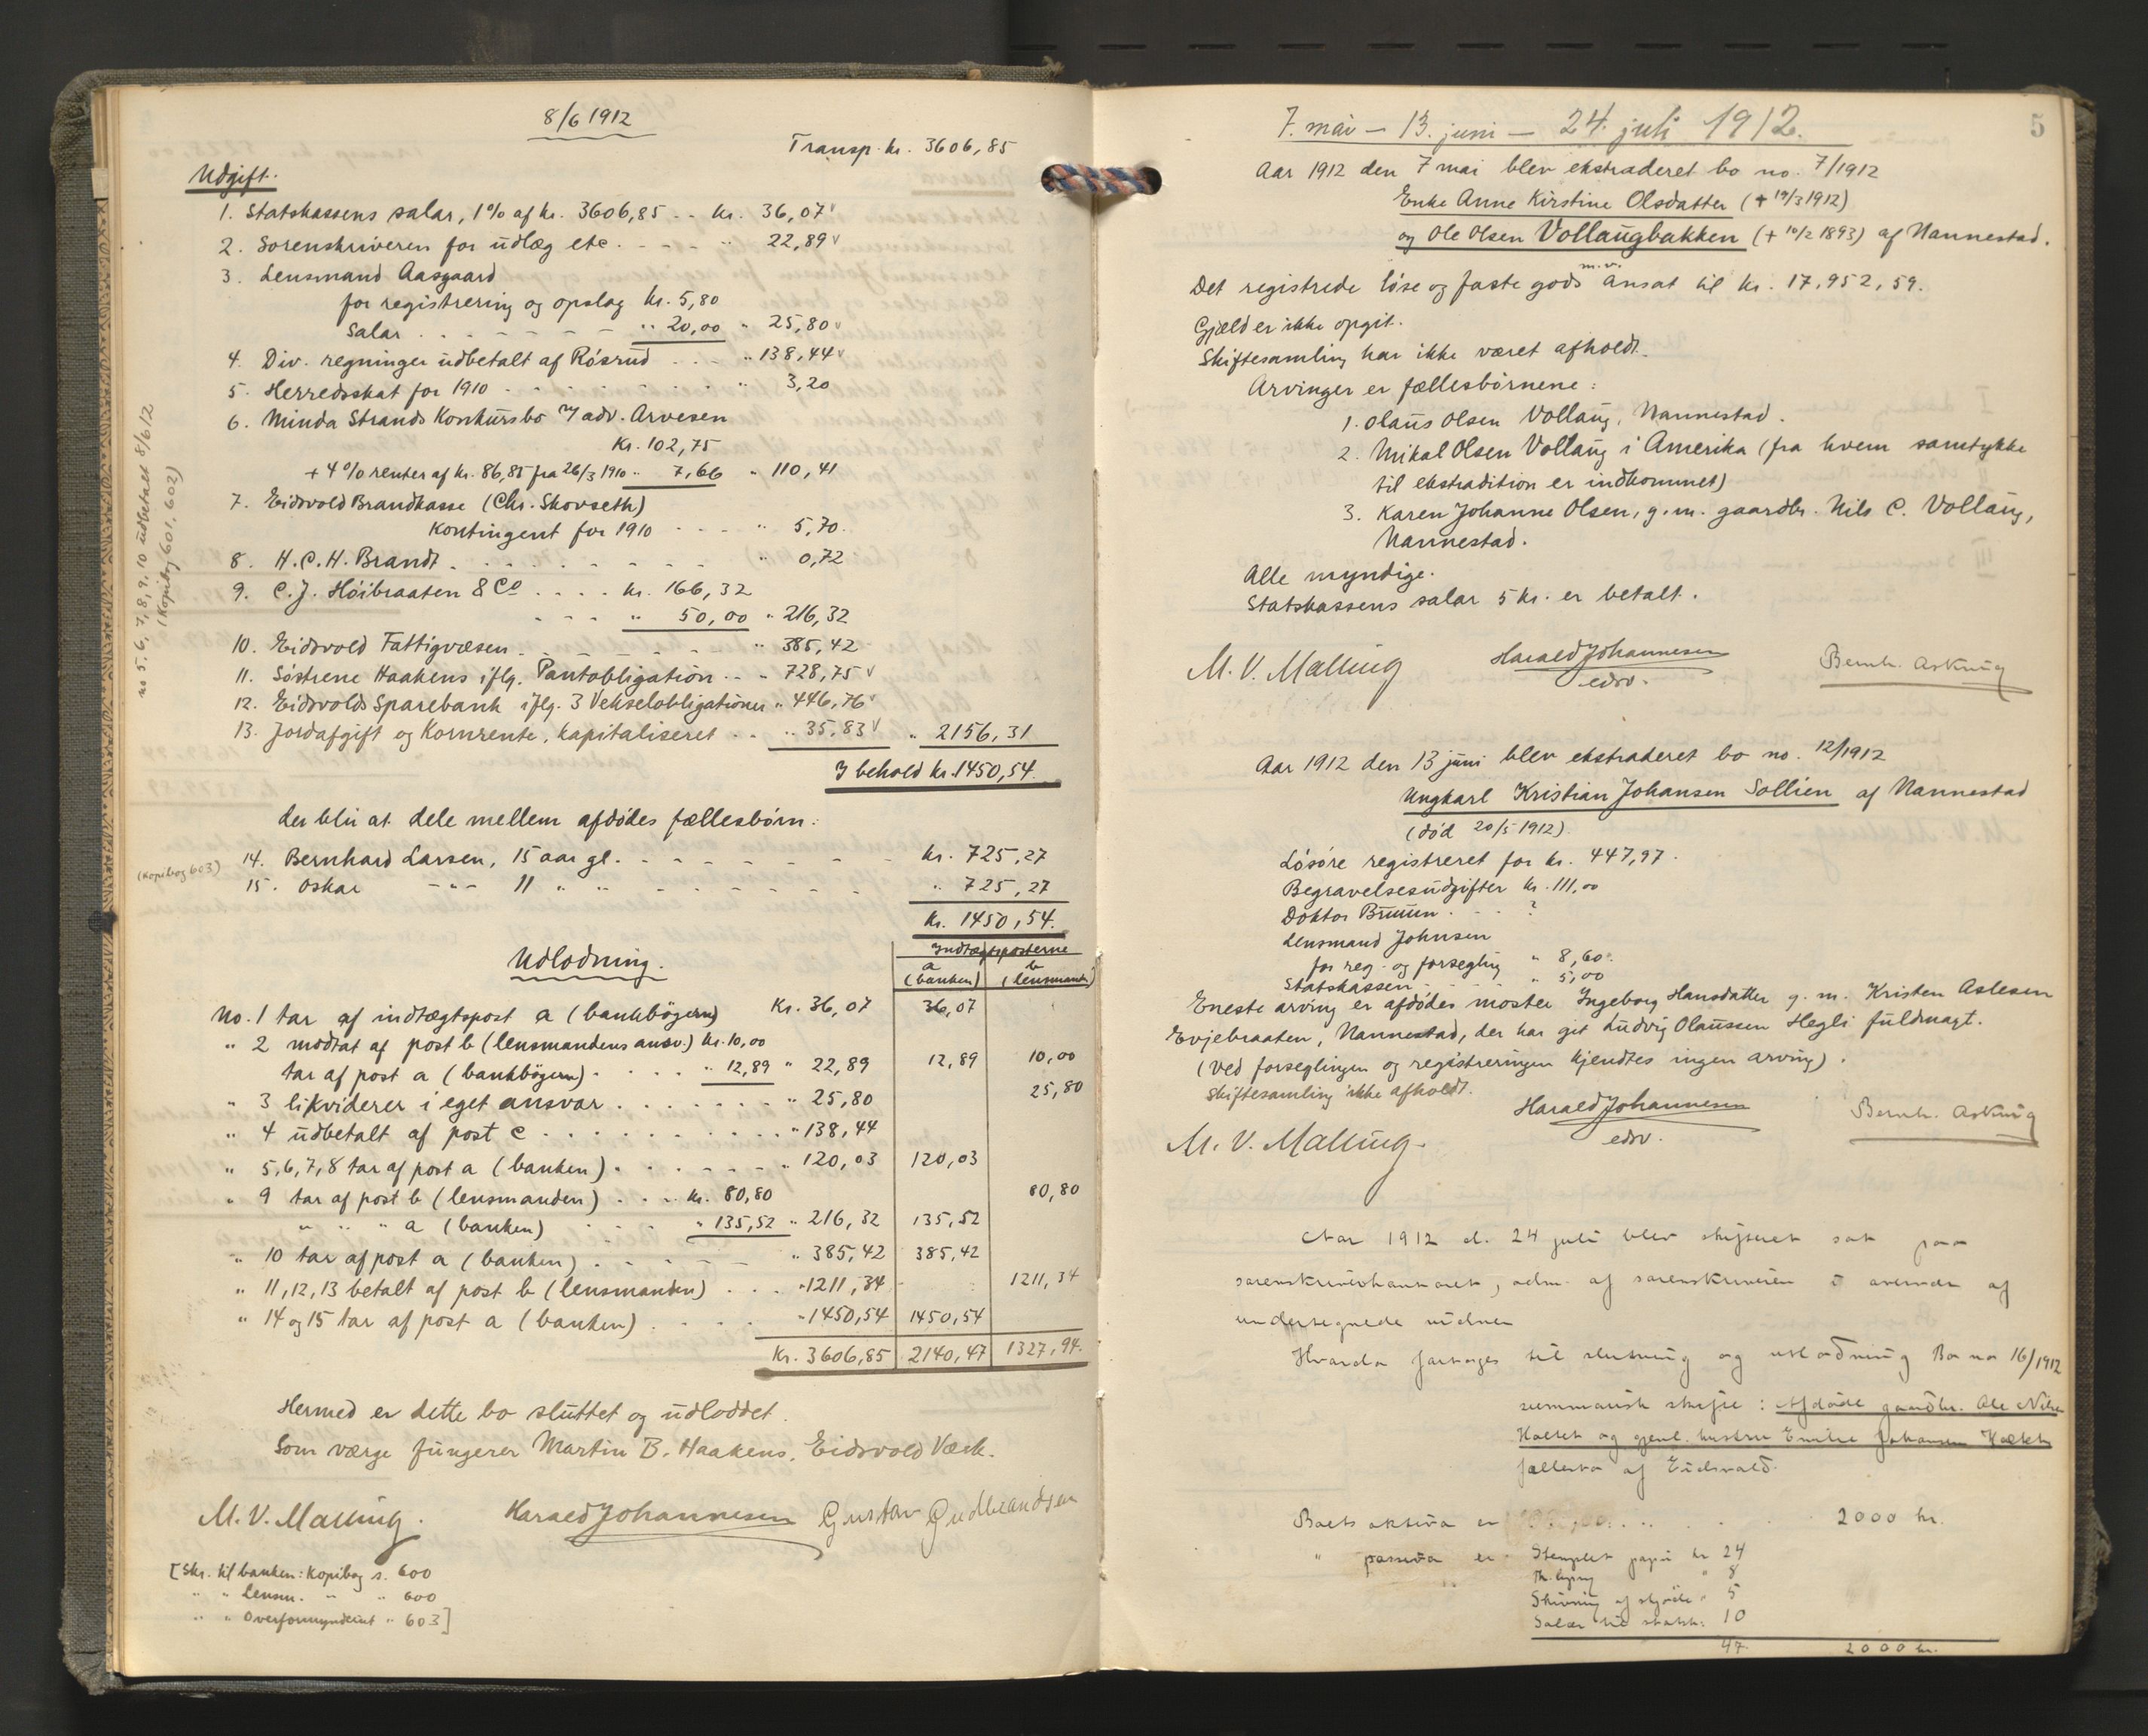 8/6 1912
Transp. kr. 3606,85
Udgift.
1. Statskassens salar, 1% af kr. 3606,85 .. kr. 36,07
2. Sorenskriveren for udlæg etc. - - - - " 22,89
3. Lensmand Aasgaard
for registrering og opslag kr. 5,80
Salar . . - - - - - " 20,00 " 25,80
4. Div. regninger udbetalt af Rösrud . . - " 138,44
5. Herredsskat for 1910 - - - - - - - " 3,20
6. Minda Strands Konkursbo v/ adv. Arvesen
Kr. 102,75
+ 4% renter af kr. 86,85 fra 26/3 1910 " 7,66 " 110,41
7. Eidsvold Brandkasse (Chr. Skovseth)
Kontingent for 1910 - - - - " 5,70
8. H.C.H. Brandt . . . . . - - - " 0,72
9. C.J. Höibraaten & Co . . . . kr. 166,32
- - - " 50,00 " 216,32
10. Eidsvold Fattigvæsen . - - - - - " 385,42
11. Söstrene Haakens iflg. Pantobligation . . - " 728,75
12. Eidsvolds Sparebank iflg. 3 Vekselobligationer " 446,76
13. Jordafgift og Kornrente, kapitaliseret . . " 35,83 " 2156,31
I behold kr. 1450,54.
der blir at dele mellem afdödes fællesbörn:
14. Bernhard Larsen, 15 aar gl. - - - - - - - - kr. 725,27
15. Oskar -"- 11 " " - - - - - - - " 725,27
Kr. 1450,54.
(Kopibog 603)
no 5, 6, 7, 8, 9, 10 udbetalt 8/6 12
(Kopibog 601, 602)
Udlodning.
Indtægtsposterne
a (banken) b (lensmanden)
No. 1 tar af indtægtspost a (bankbögern) Kr. 36,07 36,07
" 2 modtat af post b (lensmandens ansv.) kr. 10,00
tar af post a (bankbögern) . . . " 12,89 " 22,89 12,89 10,00
" 3 likviderer i eget ansvar . . . . . . . " 25,80 25,80
" 4 udbetalt af post c . . . . . . . . . . " 138,44
" 5,6,7,8 tar af post a (banken) . . - - - - " 120,03 120,03
" 9 tar af post b (lensmanden) . . . kr. 80,80 80,80
" " " a (banken) . . . " 135,52 " 216,32 135,52
" 10 tar af post a (banken) . . - - - " 385,42 385,42
" 11, 12, 13 betalt af post b (lensmanden) . . . " 1211,34 1211,34
" 14 og 15 tar af post a (banken) . . . . " 1450,54 1450,54
Kr. 3606,85 2140,47 1327,94.
Hermed er dette bo sluttet og udloddet.
Som værge fungerer Martin B. Haakens, Eidsvold Værk.
M. V. Malling. Harald Johannesen Gustav Gudbrandsen
[Skr. til banken: Kopibog s. 600
" " lensm. " " 600
" " Overformynderiet " 603]
5
7. mai – 13. juni – 24. juli 1912.
Aar 1912 den 7 mai blev ekstraderet bo no. 7/1912
Enke Anne Kirstine Olsdatter (+ 19/3 1912)
og Ole Olsen Vollaugbakken (+ 10/2 1893) af Nannestad.
Det registrede löse og faste gods m.v. ansat til kr. 17.952,59.
Gjæld er ikke opgit.
Skiftesamling har ikke været afholdt.
Arvinger er fællesbörnene:
1. Olaus Olsen Vollaug, Nannestad.
2. Mikal Olsen Vollaug i Amerika (fra hvem samtykke
til ekstradition er indkommet)
3. Karen Johanne Olsen, g.m. gaardbr. Nils C. Vollaug,
Nannestad.
Alle myndige.
Statskassens salar 5 kr. er betalt.
M. V. Malling Harald Johannesen Bernh. Askvig
edsv.
Aar 1912 den 13 juni blev ekstraderet bo no. 12/1912
Ungkarl Kristian Johansen Sollien af Nannestad
(död 20/5 1912).
Lösöre registreret for kr. 447,97.
Begravelsesudgifter kr. 111,00
Doktor Bruun . - - ?
Lensmand Johnsen
for reg- og forsegling " 8,60
Statskassen . . . . . " 5,00
Eneste arving er afdödes moster Ingeborg Hansdatter g.m. Kristen Aslesen
Evjebraaten, Nannestad, der har git Ludvig Olaussen Hegli fuldmagt.
(Ved forseglingen og registreringen kjendtes ingen arving).
Skiftesamling ikke afholdt.
M. V. Malling. Harald Johannesen Bernh. Askvig
edsv.
Aar 1912 d. 24 juli blev skifteret sat paa
sorenskriverkontoret, adm. af sorenskriveren i overvær af
undertegnede vidner
Hvorda foretoges til slutning og utlodning Bo no 16/1912
summarisk skifte: Afdöde gaardbr. Ole Nilsen
Holtet og gjenl. hustru Emilie Johansen Holtet
fællesbo af Eidsvold.
Boets aktiva er . . . . 2000 kr.
" passiva er Stemplet papir kr 24
Th.lysning " 8
Skrivning af skjöde " 5
Salær til statsk. 10
47 2000 kr.